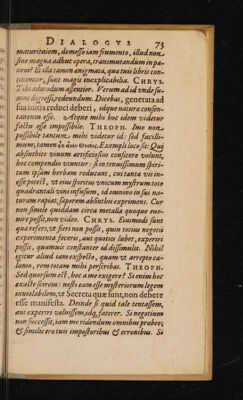 DIALOGVS. 73
maturitatem, demesse iam frumento, illud non
sine magna adhuc opera, transmutandum in pa-
nem? Et illa tamen ænigmata, quæ tuis libris con-
tinentur, sunt magis inexplicabilia. CHRYS.
Tibi admodum assentior. Verum ad id unde su-
mus digressi, redeundum. Dicebas, generata ad
sua initia reduci deberi, idque natura consen-
taneum esse. Atque mihi hoc idem videtur
factu esse impossibile. THEOPH. Imo non
possibile tantum mihi videtur id: sed facilli-
mum, tamen
Exempli loco sit: Qui
absinthite vinum artificiosius conficere volunt,
hoc compendio utuntur: si in tenuissimum spiri-
tum ipsam herbam reducant, cui tanta vis in-
esse potest, ut eius spiritus unicum mystrum toto
quadrantali vini infusum, id omnino in sui na-
turam rapiat, saporem absinthii exprimens. Cur
non simile quiddam circa metalla quoque eue-
nire possit, non video. CHRYS. Eiusmodi sunt
quæ refers, ut fieri non possit, quin totius negotii
experimenta feceris, aut quoties lubet, experiri
possis, quamuis constanter id dissimules. Nihil
igitur aliud iam expecto, quam ut arrepto ca-
lamo, rem totam mihi perscribas. THEOPH.
Sed quorsum est, hoc a me exigere? Si enim hoc
exacte scirem: nosti eam esse mysteriorum legem
inuiolabilem, ut Secreta quæ sunt, non debere
esse manifesta. Deinde si quid tale tentassem,
aut experiri voluissem, idq, faterer. Si negotium
non successit, iam me ridendum omnibus præbeo;
& similis ero tuis impostoribus & erronibus. Si